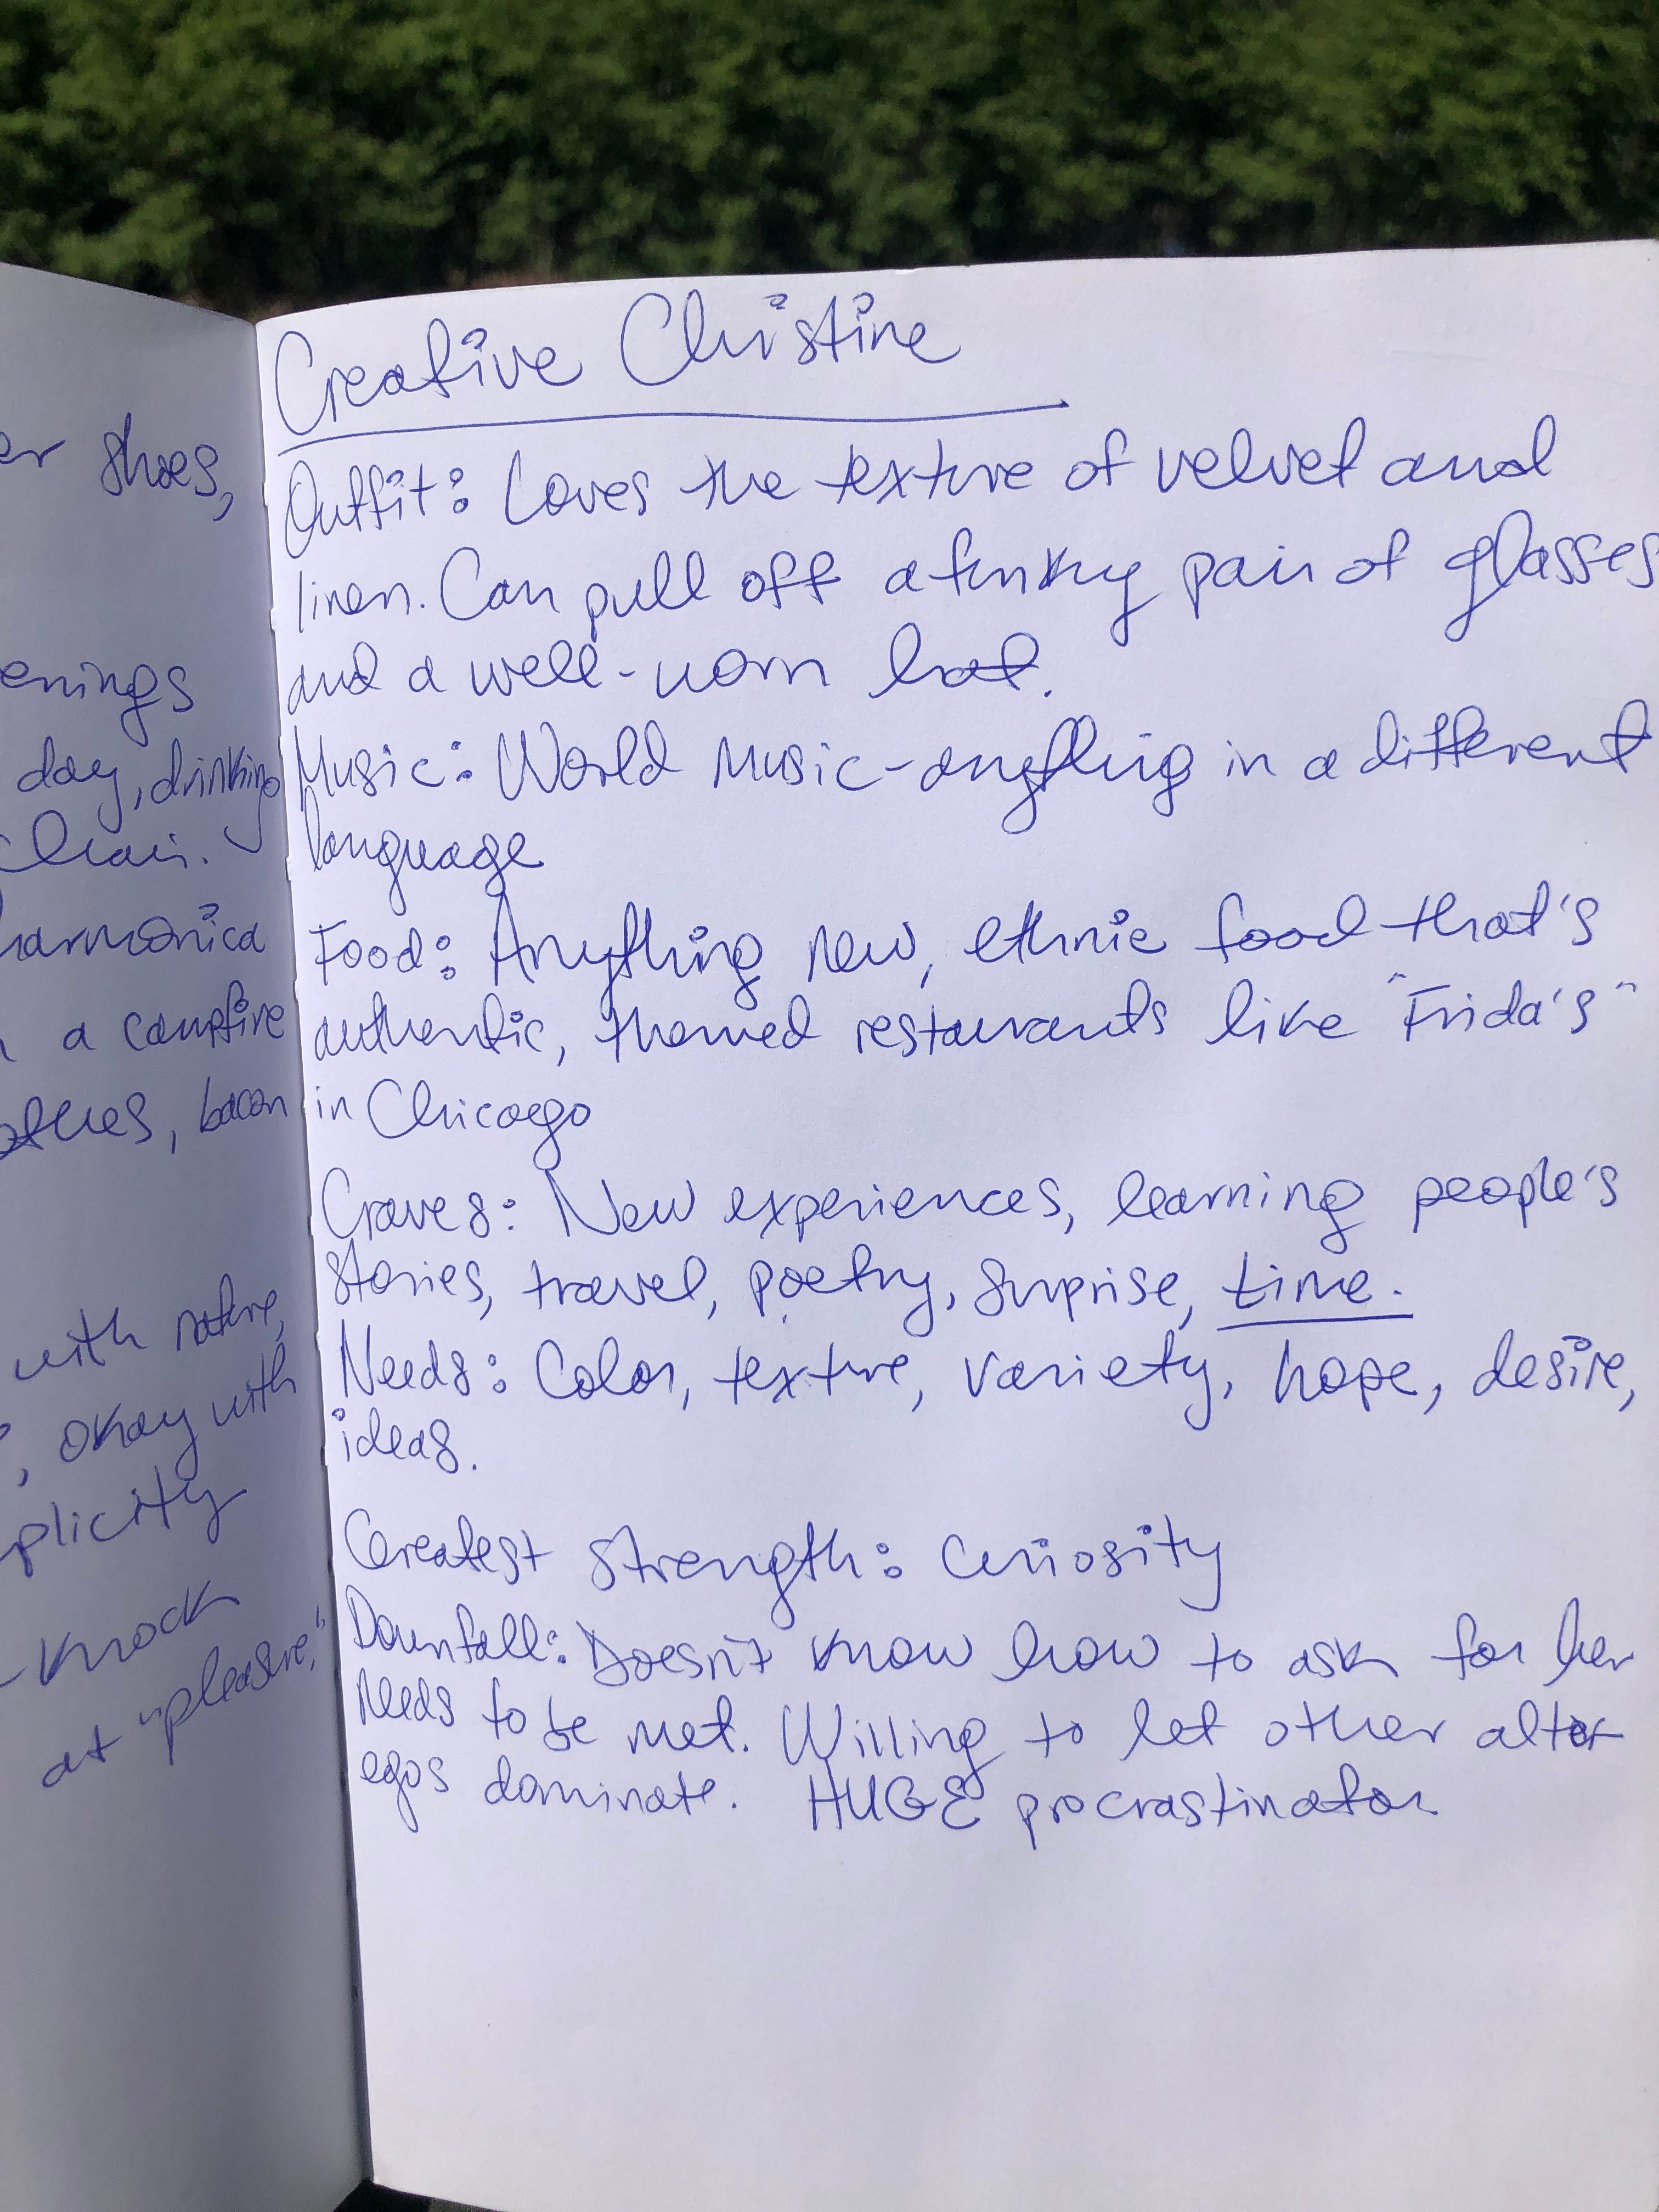 er shoes,
enings
day, drinking
Chair.
harmonica
a campfire
bacon
with nature,
, okay with
plicity
- Knock
at "pleasure."
Creative Christine
Outfit: Loves the texture of velvet and
linen. Can pull off a funky pair of glasses
and a well-worn hat.
Music: World Music-anything in a different
language
Food: Anything new, ethnic food that's
authentic, themed restaurants like "Frida's"
in Chicago
Craves: New experiences, learning people's
stories, travel, poetry, surprise, time.
Needs: Color, texture, variety, hope, desire,
ideas.
Greatest strength: Curiosity
Downfall: Doesn't know how to ask for her
needs to be met. Willing to let other alter
egos dominate. HUGE procrastinator